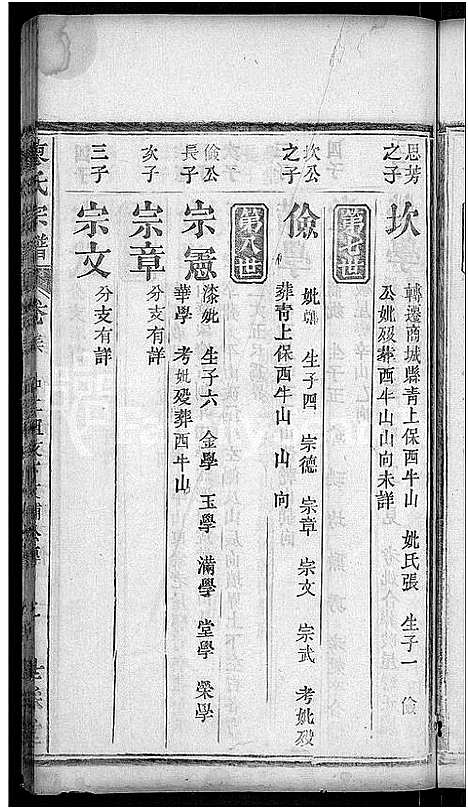 思芳之子
坎
轉遷商城縣青上保西牛山 妣氏張 生子一 儉
公妣歿葬西牛山山向未詳
第七世
坎公之子
儉
妣韓 生子四 宗德 宗章 宗文 宗武 考妣歿
葬青上保西牛山 山 向
第八世
儉公長子
宗憲
漆妣 生子六 金學 玉學 滿學 堂學 榮學
華學 考妣歿葬西牛山
次子
宗章
分支有詳
三子
宗文
分支有詳
陳氏宗譜 卷